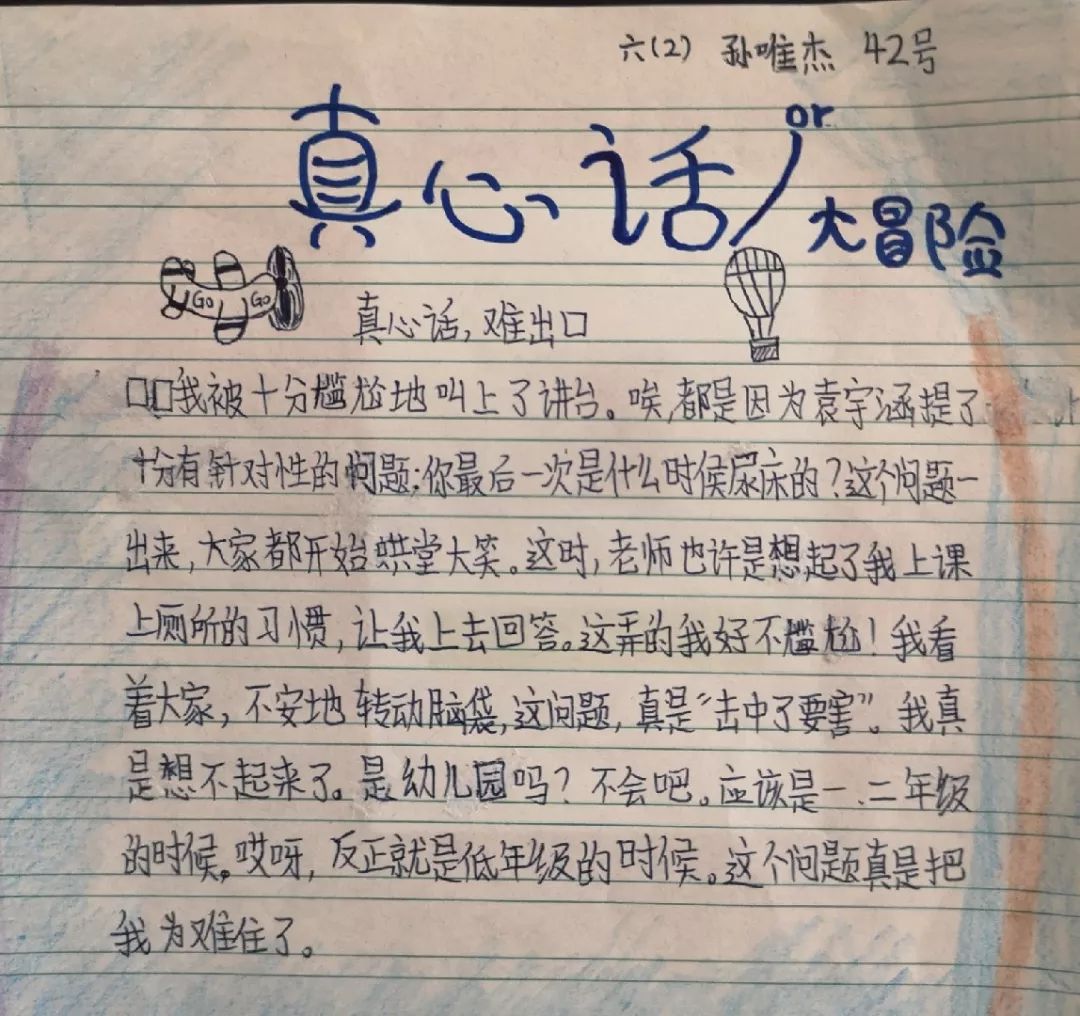 六(2) 孙唯杰 42号
真心话/or大冒险
Go Go
真心话,难出口
□□我被十分尴尬地叫上了讲台。唉,都是因为袁宇涵提了
十分有针对性的问题:你最后一次是什么时候尿床的?这个问题一
出来,大家都开始哄堂大笑。这时,老师也许是想起了我上课
上厕所的习惯,让我上去回答。这弄的我好不尴尬!我看
着大家,不安地转动脑袋,这问题,真是“击中了要害”。我真
是想不起来了。是幼儿园吗?不会吧。应该是一、二年级
的时候。哎呀,反正就是低年级的时候。这个问题真是把
我为难住了。